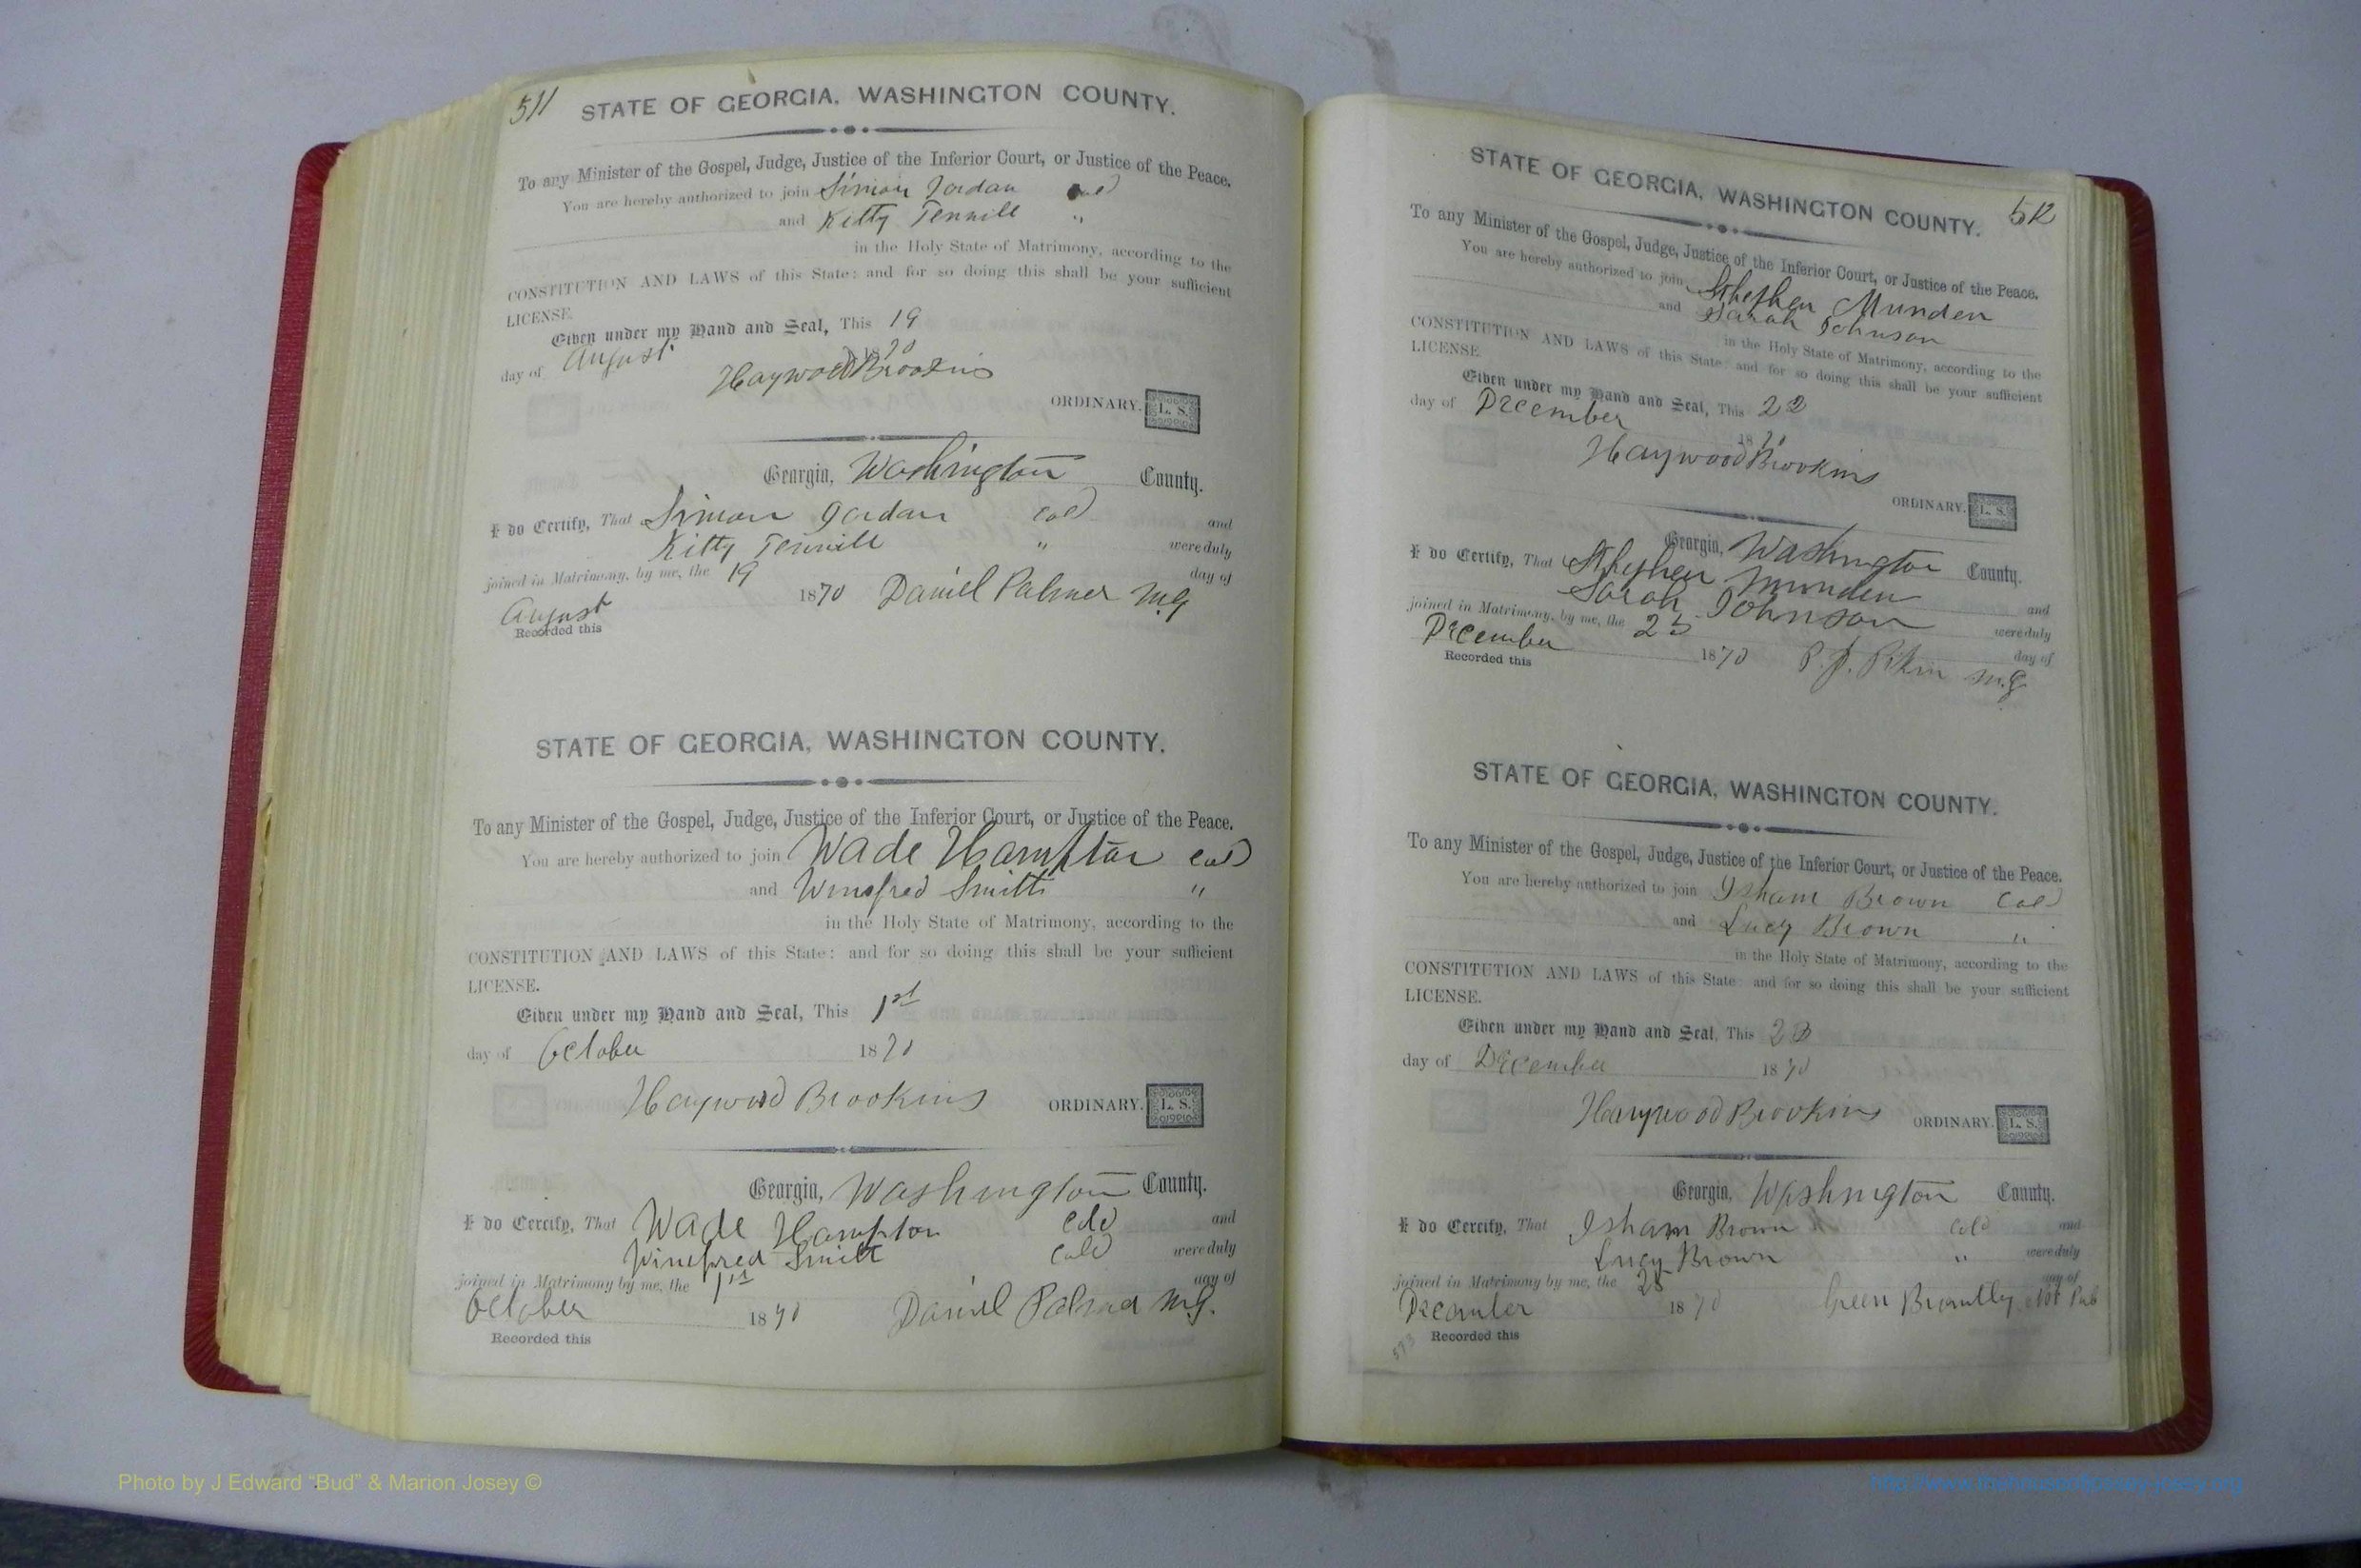 511
STATE OF GEORGIA, WASHINGTON COUNTY.
To any Minister of the Gospel, Judge, Justice of the Inferior Court, or Justice of the Peace.
You are hereby authorized to join Simon Jordan col
and Kitty Tennill "
in the Holy State of Matrimony, according to the
CONSTITUTION AND LAWS of this State: and for so doing this shall be your sufficient
LICENSE.
Given under my Hand and Seal, This 19
day of August 1870
Haywood Brookins
ORDINARY. L. S.
Georgia, Washington County.
I do Certify, That Simon Jordan col and
Kitty Tennill " were duly
joined in Matrimony, by me, the 19 day of
August 1870 Daniel Palmer M.G
Recorded this
STATE OF GEORGIA, WASHINGTON COUNTY.
To any Minister of the Gospel, Judge, Justice of the Inferior Court, or Justice of the Peace.
You are hereby authorized to join Wade Hampton col
and Winefred Smith "
in the Holy State of Matrimony, according to the
CONSTITUTION AND LAWS of this State: and for so doing this shall be your sufficient
LICENSE.
Given under my Hand and Seal, This 1st
day of October 1870
Haywood Brookins
ORDINARY. L. S.
Georgia, Washington County.
I do Certify, That Wade Hampton cold and
Winefred Smith cold were duly
joined in Matrimony by me, the 1st day of
October 1870 Daniel Palmer M.G.
Recorded this
512
STATE OF GEORGIA, WASHINGTON COUNTY.
To any Minister of the Gospel, Judge, Justice of the Inferior Court, or Justice of the Peace.
You are hereby authorized to join Stephen Munden
and Sarah Johnson
in the Holy State of Matrimony, according to the
CONSTITUTION AND LAWS of this State: and for so doing this shall be your sufficient
LICENSE.
Given under my Hand and Seal, This 22
day of December 1870
Haywood Brookins
ORDINARY. L. S.
Georgia, Washington County.
I do Certify, That Stephen Munden and
Sarah Johnson were duly
joined in Matrimony, by me, the 25 day of
December 1870 P. J. M.G.
Recorded this
STATE OF GEORGIA, WASHINGTON COUNTY.
To any Minister of the Gospel, Judge, Justice of the Inferior Court, or Justice of the Peace.
You are hereby authorized to join Isham Brown Col
and Lucy Brown "
in the Holy State of Matrimony, according to the
CONSTITUTION AND LAWS of this State: and for so doing this shall be your sufficient
LICENSE.
Given under my Hand and Seal, This
day of December 1870
Haywood Brookins
ORDINARY. L. S.
Georgia, Washington County.
I do Certify, That Isham Brown cold and
Lucy Brown " were duly
joined in Matrimony by me, the 28 day of
December 1870 Green Brantley Not Pub
Recorded this
Photo by J Edward "Bud" & Marion Josey ©